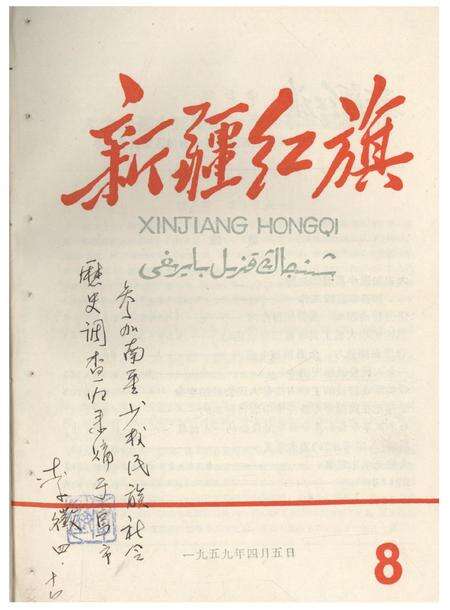 新疆红旗
XINJIANG HONGQI
شىنجاڭ قىزىل بايرىغى
参加南疆少数民族社会
歷史调查归来购于烏市
四·十
一九五九年四月五日
8